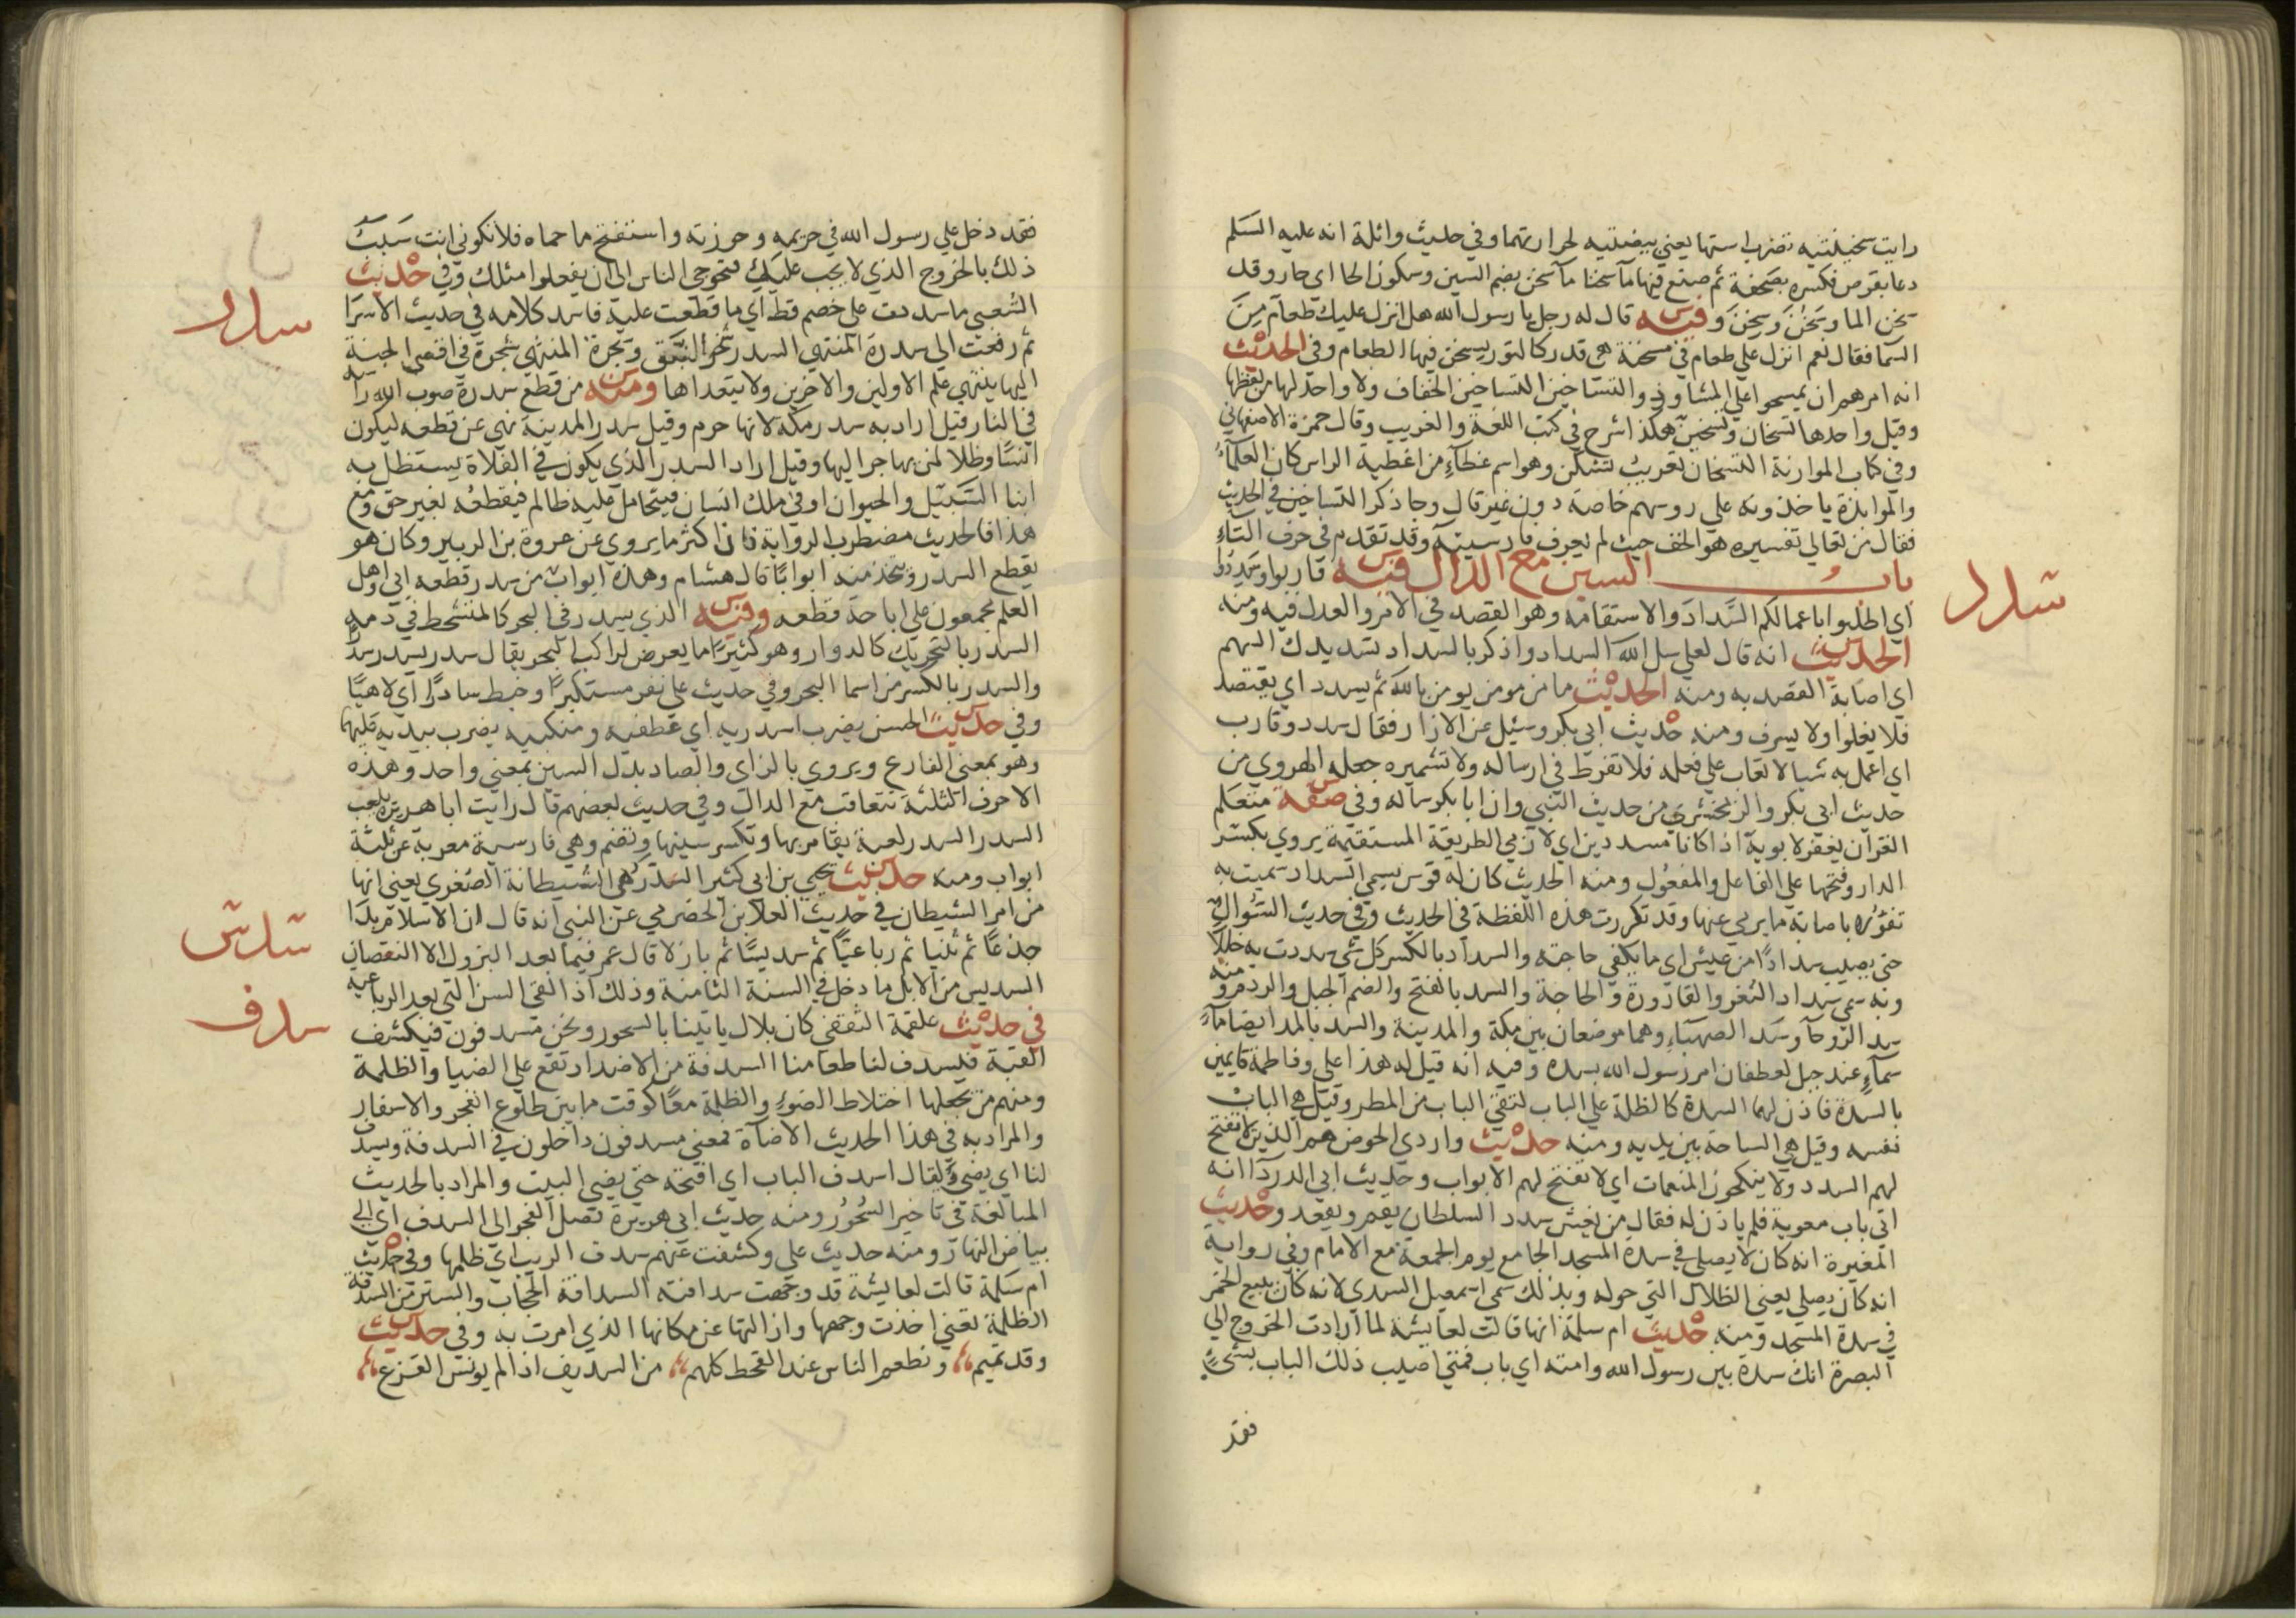 رايت سخينتيه تضرب استها يعني بيضتيه لحرارتهما وفي حديث واثلة انه عليه السلم
دعا بقرص فكسره بصحفة ثم صنع فيها مآ سخنا مآ سخن بضم السين وسكون الخا اي حار وقد
سخن الما وسَخُنَ وسَخِنَ وفيه س قال له رجل يا رسول الله هل انزل عليك طعام مِنَ
السما فقال نعم انزل علي طعام في مسخنة هي قدر كالتور يسخن فيها الطعام وفي الحديث
انه امرهم ان يمسحوا علي المشاوذ والتساخين التساخين الخفاف ولا واحد لها من لفظها
وقيل واحدها تسخان وتسخين هكذا شرح في كتب اللغة والغريب وقال حمزة الاصفهاني
وفي كتاب الموازنة التسخان تعريب تشكن وهو اسم غطآءٍ من اغطية الراس كان العلمآءُ
والموابذة ياخذونه علي روسهم خاصة دون غيرقال وجا ذكر التساخين في الحديث
فقال من تعاطي تفسيره هو الخف حيث لم يعرف فارسيته وقد تقدم في حرف التآءِ
باب السين مع الدال فيه س قاربوا وسَدِدُوا
اي اطلبوا باعمالكم السَّدادَ والاستقامة وهو القصد في الامر والعدل فيه ومنه
الحديث س انه قال لعلي سل الله السداد واذكر بالسداد تسديدك السهم
اي اصابة القصد به ومنه الحديث ما من مومن يومن بالله ثم يسدد اي يقتصد
فلا يغلوا ولا يسرف ومنه حديث ابي بكر وسئيل عن الازار فقال سدد وقارب
اي اعمل به شيا لا تعاب علي فعله فلا تفرط في ارساله ولا تشميره جعله الهروي من
حديث ابي بكر والزمخشري من حديث النبي وان ابا بكر ساله وفي صفة س متعلم
القران يغفر لابويه اذا كانا مسددين اي لازمي الطريقة المستقيمة يروي بكسر
الدار وفتحها علي الفاعل والمفعول ومنه الحديث كان له قوس يسمي السداد سميت به
تفؤلا باصابة ما يرمي عنها وقد تكررت هذه اللفظة في الحديث وفي حديث السؤال
حتى يصيب سدادًا من عيش اي ما يكفي حاجته والسداد بالكسر كل شي سددت به خللًا
وبه سمي سداد الثغر والقارورة والحاجة والسد بالفتح والضم الجبل والردم ومنه
سد الروحآ وسَد الصهبآءِ وهما موضعان بين مكة والمدينة والسد بالمد ايضا مآءُ
سمآءٍ عند جبل لغطفان امر رسول الله بسده وفيه انه قيل له هذا علي وفاطمة قايمين
بالسدة فاذن لهما السدة كالظلة علي الباب لتقي الباب من المطر وقيل هي الباب
نفسه وقيل هي الساحة بين يديه ومنه حديث واردي الحوض هم الذين لا تفتح
لهم السدد ولا ينكحون المنعمات اي لا تفتح لهم الابواب وحديث ابي الدرداا انه
اتى باب معوية فلم ياذن له فقال من يغش سدد السلطان يقم ويقعد وحديث
المغيرة انه كان لا يصلي في سدة المسجد الجامع يوم الجمعة مع الامام وفي رواية
انه كان يصلي يعني الظلال التي حوله وبذلك سمي اسمعيل السدي لانه كان يبيع الخمر
في سدة المسجد ومنه حديث ام سلمة انها قالت لعايشة لما ارادت الخروج الي
البصرة انك سدة بين رسول الله وامته اي باب فمتي اصيب ذلك الباب بشيءٍ
فقد
سدد
فقد دخل علي رسول الله في حريمه وحوزته واستفتح ما حماه فلا تكوني انت سَبَبَ
ذلك بالخروج الذي لا يجب عليك فتحوجي الناس الى ان يفعلوا مثلك وفي حديث
الشعبي ما سددت على خصم قط اي ما قطعت عليه فاسد كلامه في حديث الاسرا
سدر
ثم رفعت الي سدرة المنتهي السدر شجر النبق وسدرة المنتهي شجرة في اقصي الجنة
اليها ينتهي علم الاولين والاخرين ولا يتعداها ومنه س من قطع سدرة صوب الله راسه
في النار قيل اراد به سدر مكة لانها حرم وقيل سدر المدينة نهي عن قطعه ليكون
انسًا وظلا لمن يهاجر اليها وقيل اراد السدر الذي يكون في الفلاة يستظل به
ابنا السَّبيل والحيوان او في ملك انسان فيتحامل عليه ظالم فيقطعه بغير حق ومع
هذا فالحديث مضطرب الرواية فان اكثر ما يروي عن عروة بن الزبير وكان هو
يقطع السدر ويتخذ منه ابوابًا قال هشام وهذه ابواب من سدر قطعه ابي واهل
العلم مجمعون علي اباحة قطعه وفيه س الذي يسدر في البحر كالمتشحط في دمه
السدر بالتحريك كالدوار وهو كثيرًا ما يعرض لراكب البحر يقال سدر يسدر سدرًا
والسدر بالكسر من اسما البحر وفي حديث علي نفر مستكبرًا وخبط سادرًا اي لاهيًا
وفي حديث س الحسن يضرب اسدريه اي عطفيه ومنكبيه يضرب بيديه عليهما
وهو بمعني الفارغ ويروي بالزاي والصاد بدل السين بمعني واحد وهذه
الاحرف الثلثة تتعاقب مع الدال وفي حديث بعضهم قال رايت ابا هريرة يلعب
السدر السدر لعبة يقامر بها وتكسر سينها وتضم وهي فارسية معربة عن ثلثة
ابواب ومنه حديث س يحيي بن ابي كثير السدر هي الشيطانة الصغري يعني انها
من امر الشيطان في حديث العلا بن الحضرمي عن النبي انه قال ان الاسلام بدا
سدس
جذعًا ثم ثنيا ثم رباعيًا ثم سديسًا ثم بازلا قال عمر فيما بعد البزول الا النقصان
السديس من الابل ما دخل في السنة الثامنة وذلك اذا القي السن التي بعد الرباعية
في حديث علقمة الثقفي كان بلال ياتينا بالسحور ونحن مسدفون فيكشف
سدف
القبة فيسدف لنا طعامنا السدفة من الاضداد تقع علي الضيا والظلمة
ومنهم من يجعلها اختلاط الضوءِ والظلمة معًا كوقت ما بين طلوع الفجر والاسفار
والمراد به في هذا الحديث الاضآة فمعني مسدفون داخلون في السدفة ويسدف
لنا اي يضيء يقال اسدف الباب اي افتحه حتي يضي البيت والمراد بالحديث
المبالغة في تاخير السُحُورُ ومنه حديث ابي هريرة فصل الفجر الي السدف اي الي
بياض النهار ومنه حديث علي وكشفت عنهم سدف الريب اي ظلمها وفي حديث
ام سَلمة قالت لعايشة قد وجهت سدافته السدافة الحجاب والستر من السدفة
الظلمة يعني اخذت وجهها وازالتها عن مكانها الذي امرت به وفي حديث س
وفد تميم ونطعم الناس عند القحط كلهم من السديف اذا لم يونس القزع